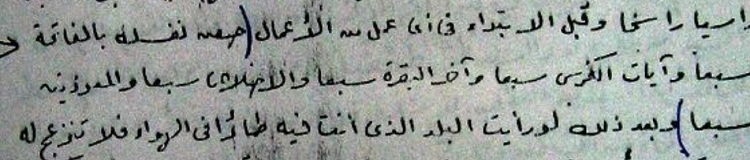 راسيا راسخا وقبل الابتداء فى أى عمل من الأعمال (حصن نفسك بالفاتحة
سبعا وآيات الكرسى سبعا وآخر البقرة سبعا والاخلاص سبعا والمعوذتين
سبعا) وبعد ذلك لو رأيت البلد الذى أنت فيه طائرا فى الهواء فلا تنزعج له